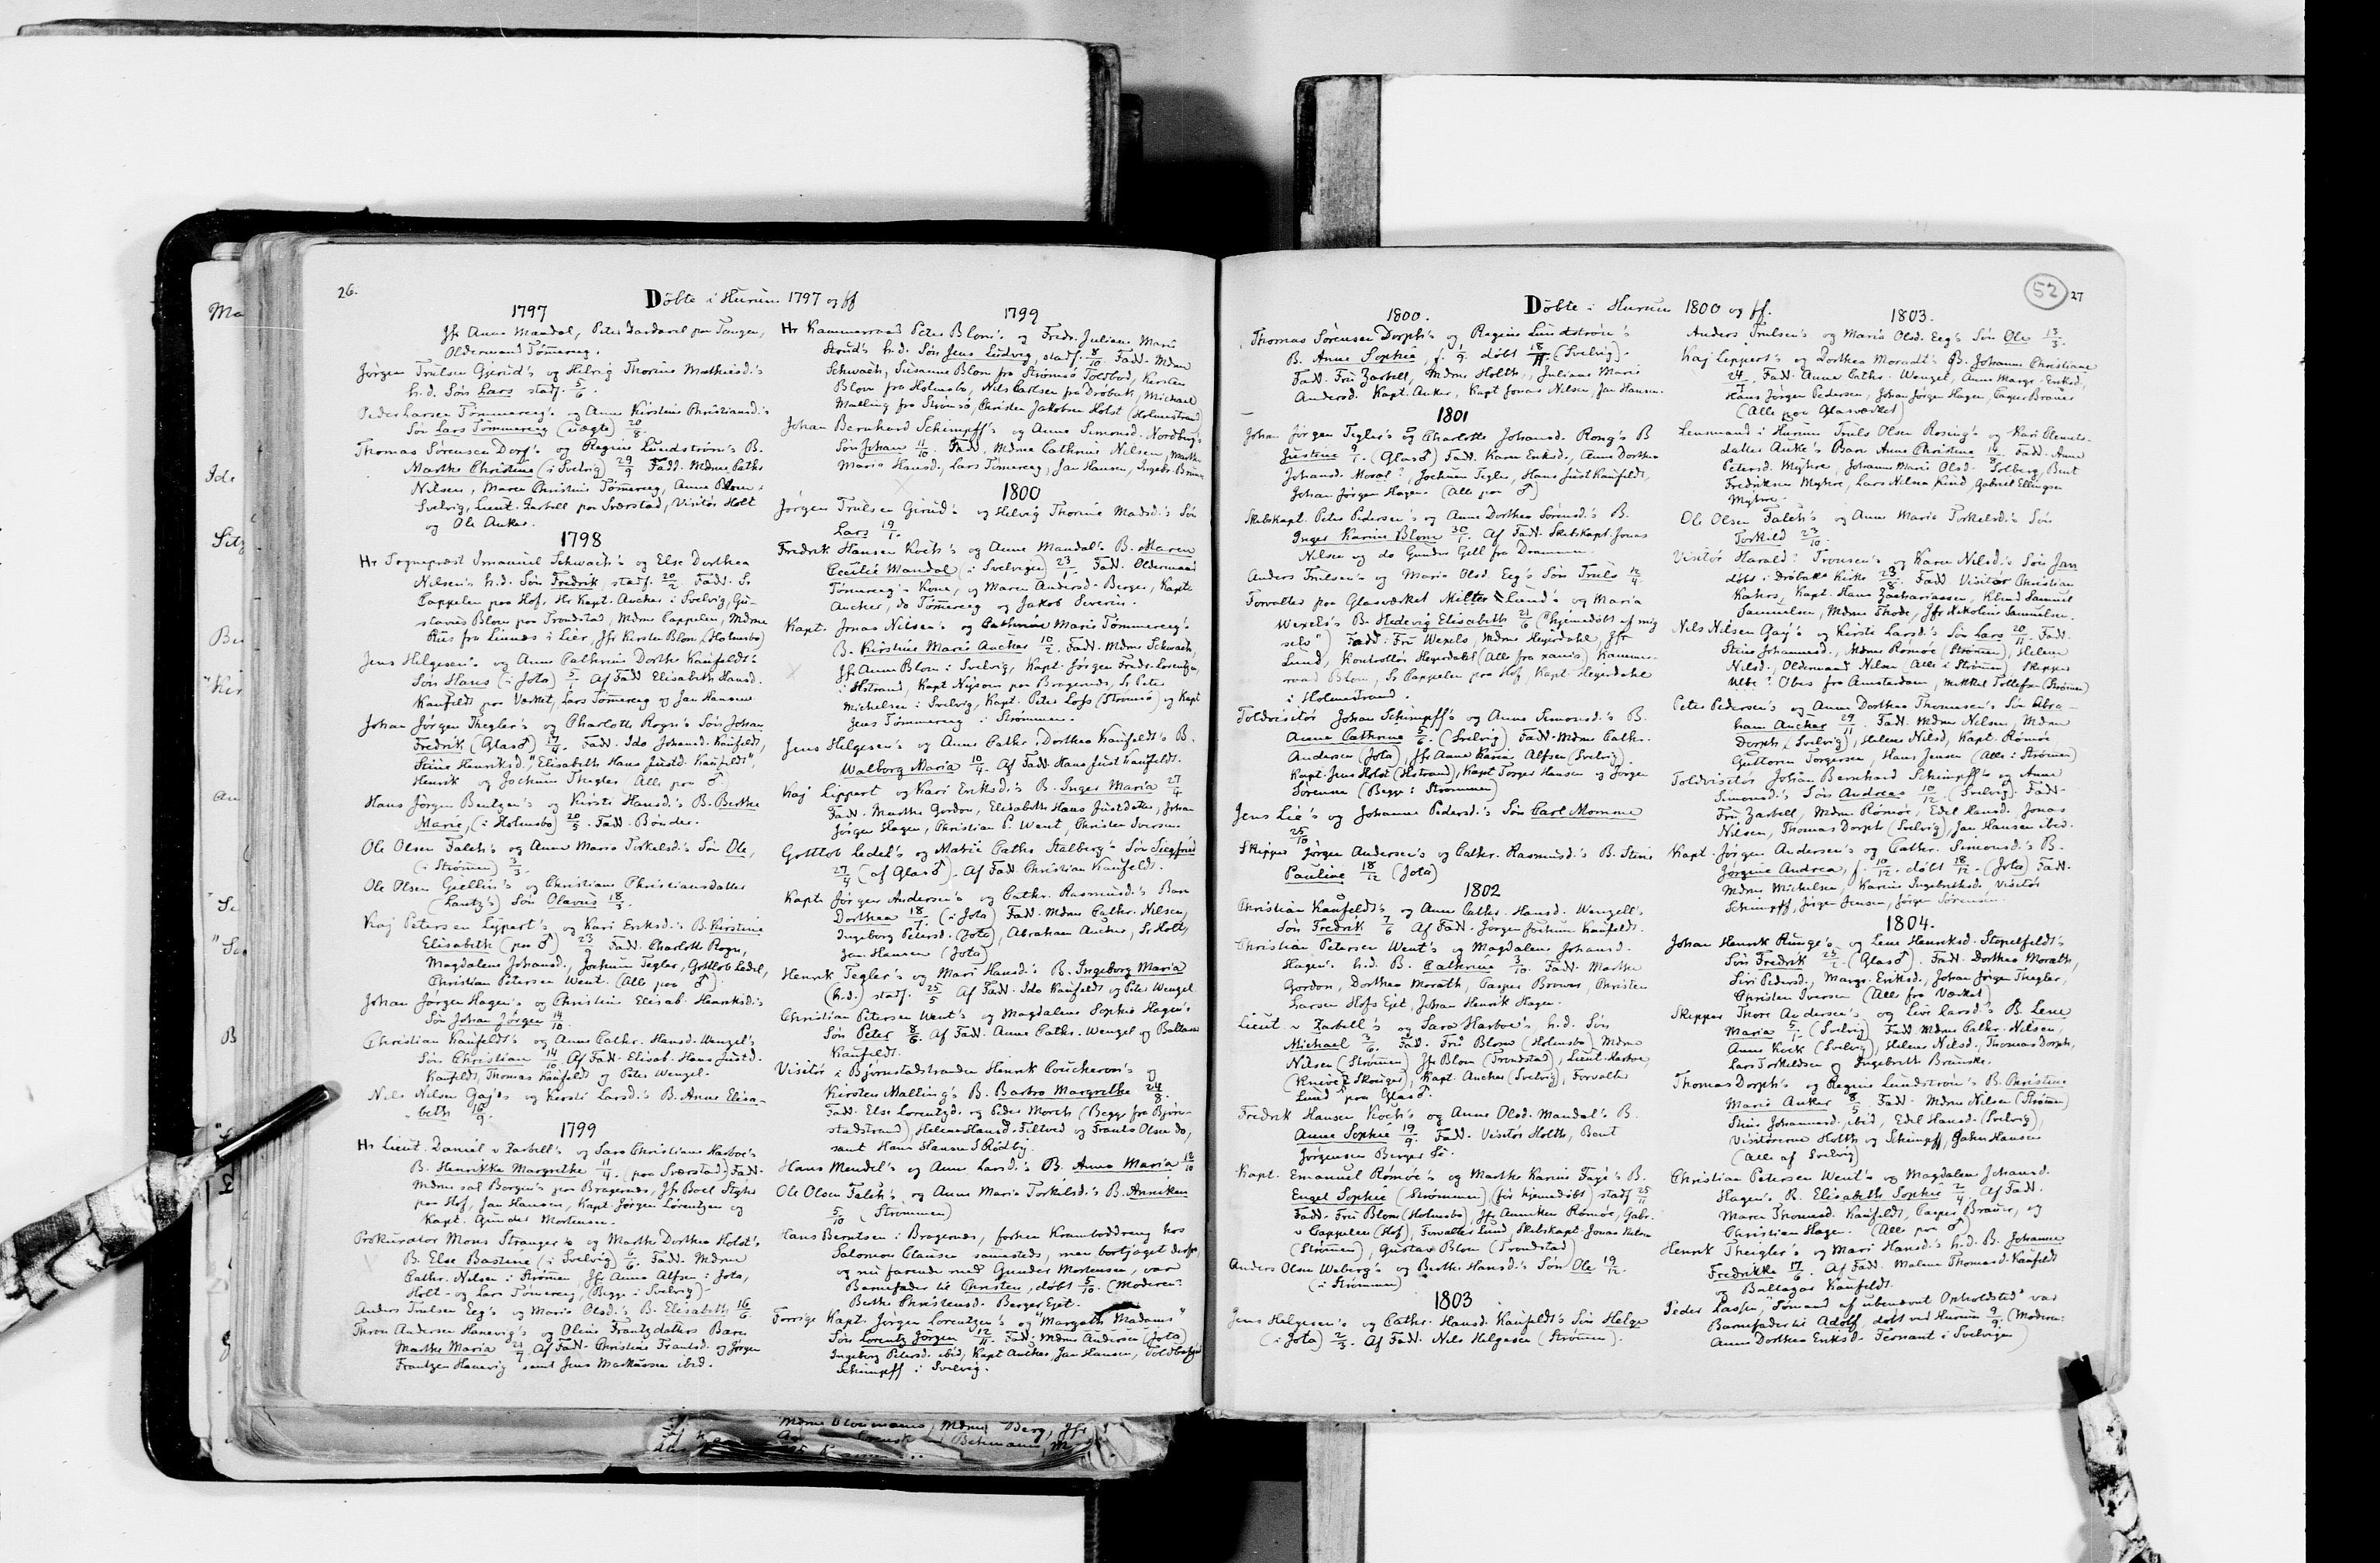 26.
Döbte i Hurum 1797 og ff
1797
Jfr Anne Mandal, Peter Zardavel paa Tangen,
Oldermand Tömmereg.
Jørgen Trulsen Gjerud's og Helvig Thorine Mathiesd.'s
h.d. Søn Lars stadf. 5/6.
Peder Larsen Tömmereg's og Anne Kirstine Christiansd.'s
Søn Lars Tömmereg (uægte) 20/8.
Thomas Sörensen Dorf's og Regine Lundström's B.
Marthe Christine (i Svelvig) 29/9 Fadd. Mdme Cathr
Nilsen, Maren Christine Tömmereg, Anne Blom i
Svelvig, Lieut. Zarbell paa Sværstad, Visitör Holt
og Ole Anker.
1798
Hr Sogneprest Imanuel Schwach's og Else Dorthea
Nilsen's h.d. Søn Fredrik, stadf. 20/2 Fadd. Sr
Cappelen paa Hof, Hr Kapt. Ancher i Svelvig, Gu-
stavus Blom paa Trondstad, Mdme Cappelen, Mdme
Riis fra Lunds i Lier, Jfr Kirsten Blom (Holmsbo)
Jens Helgesen's og Anne Cathrine Dorthe Kaufeldt's
Søn Hans (i Jota) 5/1 Af Fadd Elisabeth Hansd.
Kaufeldt paa Værket, Lars Tömmereg og Jan Hansen
Johan Jørgen Thegler's og Charlotte Rogn's Søn Johan
Fredrik (Glas♂) 17/4. Fadd. Ida Johansd. Kaufeldt,
Stine Henriksd., "Elisabeth Hans Justd. Kaufeldt",
Henrik og Jochum Thegler Alle paa ♂
Hans Jørgen Bentzen's og Kirsti Hansd.'s B. Berthe
Marie, (i Holmsbo) 20/5. Fadd. Bönder.
Ole Olsen Falch's og Anne Maria Torkelsd.'s Søn Ole,
(i Strömmen) 3/3.
Ole Olsen Gjellin's og Christiane Christiansdatter
(Lantz's) Søn Olavus 18/3.
Kaj Petersen Lippert's og Kari Eriksd.'s B. Kirstine
Elisabeth (paa ♂) 23/9 Fadd. Charlotte Rogn,
Magdalene Johansd., Jochum Tegler, Gottlob Ledel,
Christian Petersen Went. (Alle paa ♂).
Johan Jørgen Hagen's og Christine Elisab. Henriksd.'s
Søn Johan Jörgen 14/10.
Christian Kaufeldt's og Anne Cathr. Hansd. Wenzel's
Søn Christian 14/10 Af Fadd. Elisab. Hans Justd.
Kaufeldt, Thomas Kaufeldt og Peter Wenzel.
Nils Nilsen Gaj's og Kersti Larsd.'s B. Anne Elisa-
beth 16/9.
1799
Hr Lieut. Daniel v Zarbell's og Sara Christiane Harboe's
B. Henrikke Margrethe 11/4. (paa Sværstad) Fadd.
Mdme sal Borgen's paa Bragernes, Jfr Boel Styhr
paa Hof, Jan Hansen, Kapt. Jörgen Lorentzen og
Kapt. Gunder Mortensen.
Prokurator Mons Stranger's og Marthe Dorthea Holst's
B. Else Bastine (i Svelvig) 6/6 Fadd. Mdme
Cathr. Nilsen i Strömmen, Jfr Anne Alfsen i Jota,
Holt og Lars Tömmereg, (Begge i Svelvig).
Anders Trulsen Eeg's og Maria Olsd.'s B. Elisabeth 16/6
Thron Andersen Hanevig's og Oline Frantzdatters Barn
Marthe Maria 21/7. Af Fadd. Christine Frantsd. og Jörgen
Frantzen Hanevig samt Jens Markussen ibid.
1799
Hr Kammerraad Peter Blom's og Fredr. Juliane Marie
Stoud's h.d. Søn Jens Ludvig, stadf. 8/10 Fadd. Mdme
Schwach, Susanne Blom fra Strømsö Toldbod, Kirsten
Blom fra Holmsbo, Nils Carlsen fra Dröbak, Michael
Malling fra Strömsö, Christen Jakobsen Holst (Holmestrand)
Johan Bernhard Schimpff's og Anne Simonsd. Nordbuj's
Søn Johan 11/10. Fadd. Mdme Cathrine Nilsen, Marthe
Maria Hansd., Lars Tömereg, Jan Hansen, Ingebr. Brunn
1800
Jörgen Trulsen Girud's og Helvig Thorine Madsd.'s Søn
Lars 19/1.
Fredrik Hansen Koch's og Anne Mandal's B. Maren
Cecilie Mandal (i Svelvigen) 23/1 Fadd. Oldermand
Tömmereg's Kone, og Maren Andersd. Berger, Kapt.
Ancher, do Tömmereg og Jakob Severin.
Kapt. Jonas Nilsen's og Cathrine Marie Tömmereg's
B. Kirstine Marie Ancher 10/2. Fadd. Mdme Schwach,
Jfr Anne Blom i Svelvig, Kapt. Jörgen Fredr. Lorentzen,
i Hstrand, Kapt Nysom paa Bragernes, Sr Peter
Michelsen i Svelvig, Kapt. Peter Loss (Strömsö) og Kapt
Jens Tömmereg i Strömmen.
Jens Helgesen's og Anne Cathr. Dorthea Kaufeldt's B.
Walborg Maria 10/4. Af Fadd Hans Just Kaufeldt.
Kaj Lippert og Kari Eriksd.'s B. Inger Maria 27/4
Fadd. Marthe Gordon, Elisabeth Hans Justdatter, Johan
Jörgen Hagen, Christian P. Went, Christen Iversen
Gottlob Ledel's og Marie Cathr. Stalberg's Søn Siegfried
27/4 (af Glas♂). Af Fadd. Christian Kaufeldt.
Kapt. Jörgen Andersen's og Cathr. Rasmusd.'s Barn
Dorthea 18/7. (i Jota) Fadd. Mdme Cathr. Nilsen,
Ingeborg Petersd. (Jota), Abraham Ancher, Sr Holt,
Jan Hansen (Jota)
Henrik Tegler's og Mari Hansd.'s B. Ingeborg Maria
(h.d.) stadf. 25/5 Af Fadd. Ida Kaufeldt og Peter Wenzel
Christian Petersen Went's og Magdalene Sophie Hagen's
Søn Peter 8/6. Af Fadd. Anne Cathr. Wenzel og Baltasar
Kaufeldt.
Visitör i Björnstadstranden Henrik Coucheron's og
Kirsten Malling's B. Barbro Margrethe 24/8.
Fadd. Else Lorentzd. og Peder Morch (Begge fra Björn-
stadstrand), Helene Hansd. Filtved og Frants Olsen do,
samt Hans Hansen S Rödby.
Hans Mendel's og Anne Larsd.'s B. Anne Maria 12/10
Ole Olsen Falch's og Anne Maria Torkilsd.'s B. Anniken
5/10 (Strömmen)
Hans Berntsen i Bragernes, forhen Kramboddreng hos
Salomon Clausen sammesteds, men bortjaget derfra,
og nu farende med Gunder Mortensen, var
Barnefader til Christen, döbt 5/10. (Moderen:
Berthe Christensd. Berger Ejet.
Forrige Kapt. Jørgen Lorentzen's og "Margrethe Madame"
Søn Lorentz Jörgen 12/11. Fadd. Mdme Andersen (Jota)
Ingeborg Petersd. ibid, Kapt Ancher, Jan Hansen, Toldbetjent
Schimpff i Svelvig.
52
27
Döbte i Hurum 1800 og ff.
1800.
Thomas Sörensen Dorph's og Regine Lundström's
B. Anne Sophie, f. 1/9 döbt 18/11 (Svelvig).
Fadd. Fru Zarbell, Mdme Holth, Juliane Marie
Andersd. Kapt. Anker, Kapt Jonas Nilsen, Jan Hansen.
1801
Johan Jörgen Tegler's og Charlotte Johansd. Rong's B
Justine 9/1. (Glas♂) Fadd. Karen Eriksd., Anne Dorthea
Johansd. Morat?, Jochum Tegler, Hans Just Kaufeldt,
Johan Jörgen Hagen. (Alle paa ♂)
Skibskapt. Peter Pedersen's og Anne Dorthea Sörensd.'s B.
Inger Karine Blom 30/1. Af Fadd. Skibskapt. Jonas
Nilsen og do Gunder Gell fra Drammen.
Anders Trulsen's og Maria Olsd. Eeg's Søn Truls 12/4.
Forvalter paa Glasværket Milter Lund's og Maria
Wexels's B. Hedevig Elisabeth 21/6 ("hjemmedöbt af mig
selv") Fadd. Fru Wexels, Mdme Heyerdahl, Jfr
Lund, Kontrollör Heyerdahl (Alle fra xania) Kammer-
raad Blom, Sr Cappelen paa Hof, Kapt. Heyerdahl
i Holmestrand.
Toldvisitör Johan Schimpff's og Anne Simonsd.'s B.
Anne Cathrine 5/6. (Svelvig) Fadd. Mdme Cathr.
Andersen (Jota), Jfr Anne Karin Alfsen (Svelvig),
Kapt. Jens Holst (Hstrand), Kapt Torger Hansen og Jörgen
Sörensen (Begge i Strömmen)
Jens Lie's og Johanne Pedersd.'s Søn Carl Momme
25/10.
Skipper Jörgen Andersen's og Cathr. Rasmusd.'s B. Stine
Pauline 18/12 (Jota)
1802
Christian Kaufeldt's og Anne Cathr. Hansd. Wenzell's
Søn Fredrik 7/6 Af Fadd. Jörgen Jochum Kaufeldt.
Christian Petersen Went's og Magdalene Johansd.
Hagen's h.d. B. Cathrine 3/10. Fadd. Marthe
Gordon, Dorthea Morath, Casper Brauer, Christen
Larsen Hofs Ejet, Johan Henrik Hagen.
Lieut. v Zarbell's og Sara Harboe's h.d. Søn
Michael 3/6. Fadd. Fru Blom (Holmsbo) Mdme
Nilsen (Strömmen) Jfr Blom (Trondstad), Lieut. Harboe,
Kapt. Ancher (Svelvig), Forvalter
Lund paa Glas♂.
Fredrik Hansen Koch's og Anne Olsd. Mandal's B.
Anne Sophie 19/9. Fadd. Visitör Holth, Bent
Jörgensen Berger
Kapt. Emanuel Römöe's og Marthe Karine Faye's B.
Engel Sophie (Strömmen) (för hjemmedöbt) stadf 25/11
Fadd. Fru Blom (Holmsbo), Jfr Anniken Römöe, Gabr.
v Cappelen (Hof), Forvalter Lund, Skibskapt Jonas Nilsen
(Strömmen), Gustav Blom (Trondstad)
Anders Olsen Weberg's og Berthe Hansd.'s Søn Ole 19/12.
(i Strömmen)
1803
Jens Helgesen's og Cathr. Hansd. Kaufeldt's Søn Helge
(i Jota) 2/3. Af Fadd. Nils Helgesen (Strömmen).
1803.
Anders Trulsen's og Maria Olsd. Eeg's Søn Ole 13/3.
Kaj Leppert's og Dorthea Moradt's B. Johanne Christiane
24/7. Fadd. Anne Cathr. Wenzel, Anne Margr. Eriksd.,
Hans Jörgen Pedersen, Johan Jörgen Hagen, Casper Brauer
(Alle paa Glasværket)
Lensmand i Hurum Truls Olsen Rosing's og Kari Clemets-
datter Anke's Barn Anne Christine 14/8. Fadd. Anne
Petersd. Myhre, Johanne Marie Olsd. Solberg, Bent
Fredriksen Myhre, Lars Nilsen Rind, Gabriel Ellingsen
Myhre.
Ole Olsen Falch's og Anne Maria Torkelsd.'s Søn
Torkild 23/10.
Visitör Harald? Tronsen's og Karen Nilsd.'s Søn Jan
döbt i Dröbaks Kirke 23/8. Fadd. Visitör Christian
Katers, Kapt. Hans Zachariassen, Klund Samuel
Samuelsen, Mdme Thode, Jfr Nikoline Samuelsen.
Nils Nilsen Gay's og Kirsti Larsd.'s Søn Lars 20/11. Fadd.
Stine Johannesd., Mdme Römöe (Strömmen), Helene
Nilsd., Oldermand Nilsen (Alle i Strömmen), Skipper
Ulbe? Obes fra Amsterdam, Mikkel Tollefsen (Strömmen)
Peter Pedersen's og Anne Dorthea Thomsen's Søn Abra-
ham Ancher 29/11. Fadd. Mdme Nilsen, Mdme
Dorph (Svelvig), Helene Nilsd, Kapt. Römöe
Guttorm Torgersen, Hans Jensen (Alle i Strömmen)
Toldvisitör Johan Bernhard Schimpff's og Anne
Simonsd.'s Søn Andreas 10/12. (Svelvig). Fadd.
Fru Zarbell, Mdme Römöe, Edel Hansd. Jonas
Nilsen, Thomas Dorph (Svelvig), Jan Hansen ibid.
Kapt. Jörgen Andersen's og Cathr. Simonsd.'s B.
Jörgine Andrea, f. 10/12. döbt 18/12. (Jota) Fadd.
Mdme Michelsen, Karine Ingebriktsd. Visitör
Schimpff, Jörgen Jensen, Jörgen Sörensen.
1804.
Johan Henrik Runge's og Lene Henriksd. Stopelfeldt's
Søn Fredrik 25/2 (Glas♂). Fadd. Dorthea Morath,
Siri Pedersd., Margr. Eriksd., Johan Jörgen Thegler,
Christen Iversen (Alle fra Værket)
Skipper Thore Andersen's og Live Larsd.'s B. Lene
Maria 5/1. (Svelvig) Fadd. Mdme Cathr. Nilsen,
Anne Kock (Svelvig), Helene Nilsd., Thomas Dorph,
Lars Torkildsen og Ingebreth Brunske.
Thomas Dorph's og Regine Lundström's B. Christine
Marie Anker 8/5. Fadd. Mdme Nilsen (Strömmen)
Stine Johannesd., ibid, Edel Hansd. (Svelvig),
Visitörerne Holth og Schimpff, Johan Hansen
(Alle af Svelvig)
Christian Petersen Went's og Magdalene Johansd.
Hagen's B. Elisabeth Sophie 2/4. Af Fadd.
Maren Thomasd. Kaufeldt, Casper Brauer, og
Christian Hagen. (Alle paa ♂)
Henrik Theigler's og Mari Hansd.'s h.d. B. Johanne
Fredrikke 17/6. Af Fadd. Malene Thomasd. Kaufeldt
og Baltazar Kaufeldt.
Peder Lassen, "Sömand af ubenævnt Opholdsted" var
Barnefader til Adolf, döbt ved Hurum 9/9. (Moderen:
Anne Dorthea Eriksd. Tornant i Svelvigen)